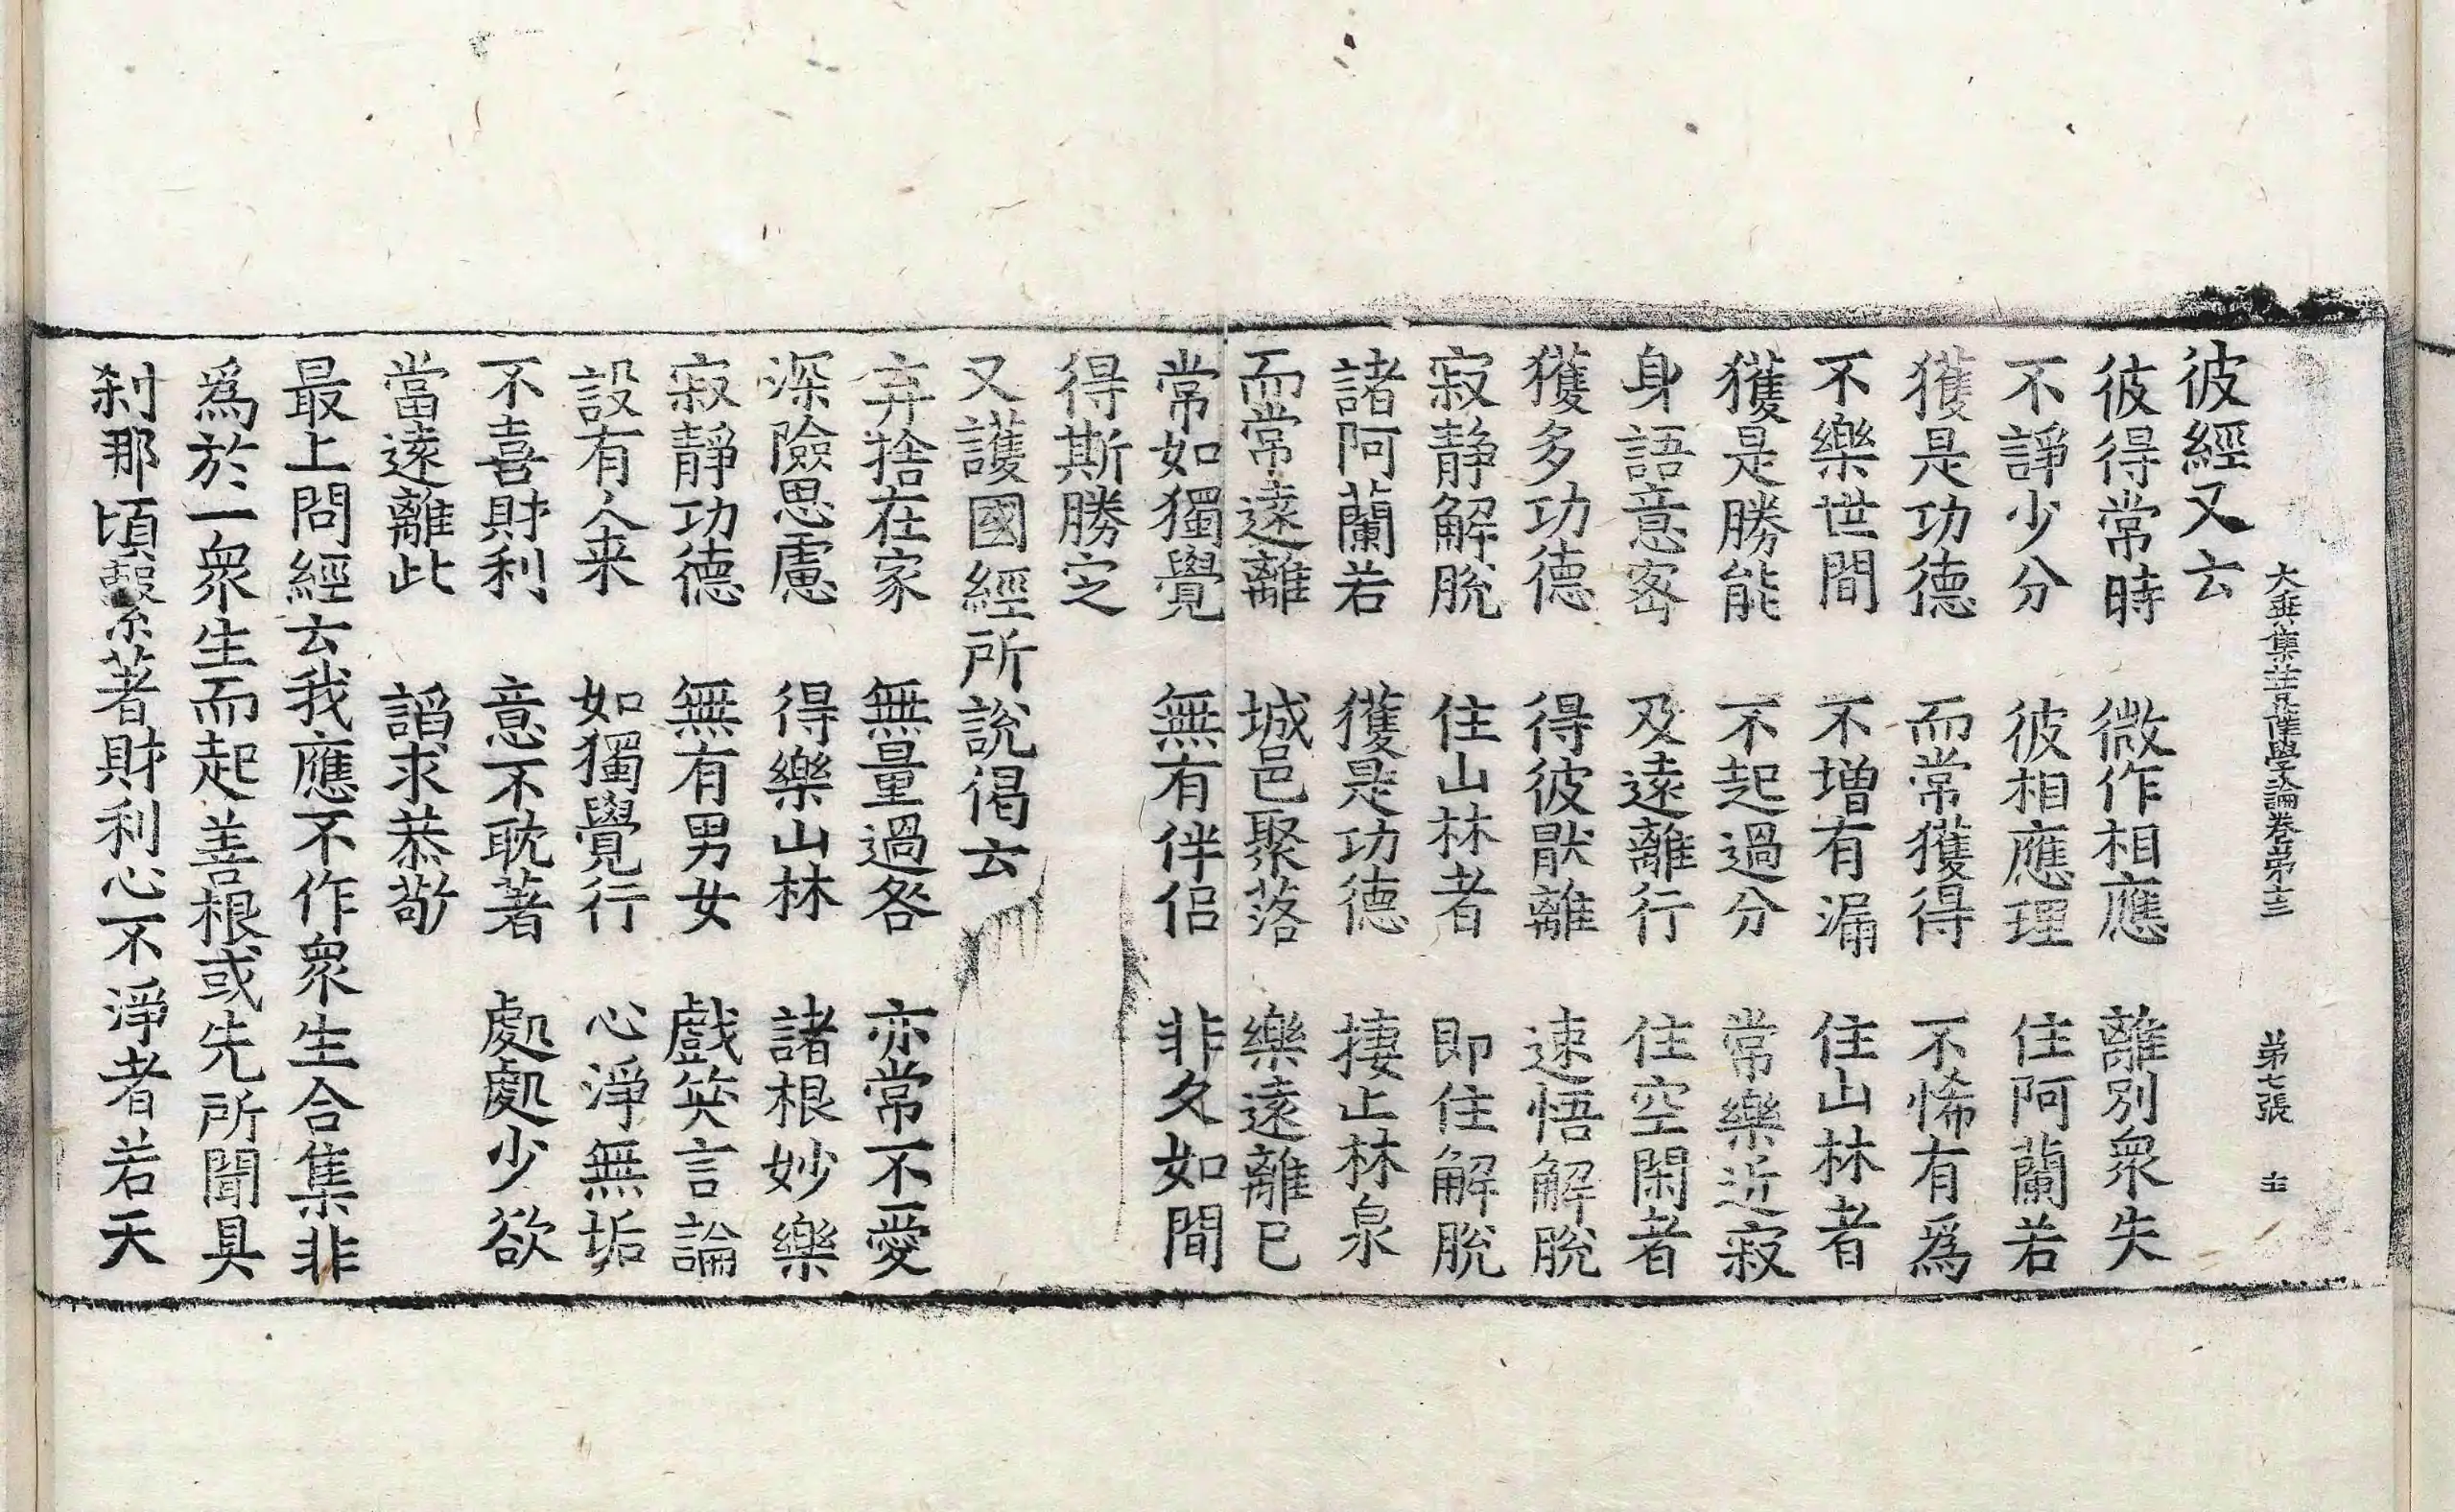 大乘集菩薩學論卷第十三　第七張　圭
彼經又云
彼得常時　微作相應　離別衆失
不諍少分　彼相應理　住阿蘭若
獲是功德　而常獲得　不悕有爲
不樂世間　不增有漏　住山林者
獲是勝能　不起過分　常樂近寂
身語意密　及遠離行　住空閑者
獲多功德　得彼猒離　速悟解脫
寂静解脫　住山林者　即住解脫
諸阿蘭若　獲是功德　捿止林泉
而常遠離　城邑聚落　樂遠離已
常如獨覺　無有伴侣　非久如間
得斯勝定
又護國經所說偈云
弃捨在家　無量過咎　亦常不愛
深險思慮　得樂山林　諸根妙樂
寂靜功德　無有男女　戲笑言論
設有人来　如獨覺行　心淨無垢
不喜財利　意不耽著　處處少欲
當遠離此　謟求恭敬
最上問經云我應不作衆生合集非
爲於一衆生而起善根或先所聞具
刹那頃繫著財利心不淨者若天